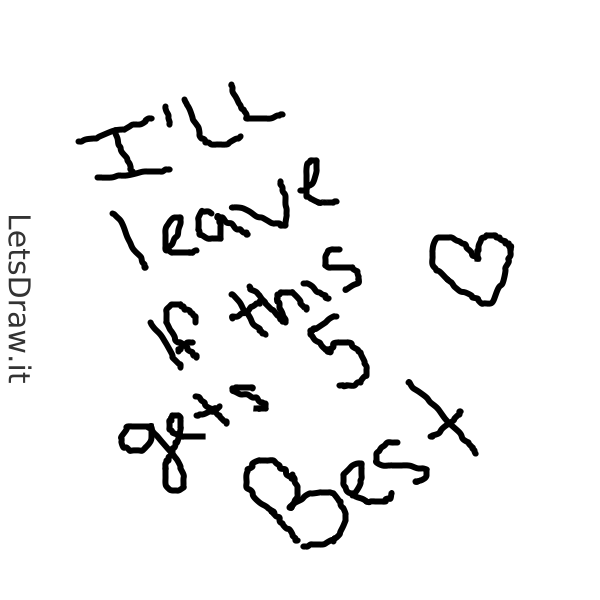 I'LL
leave
If this
gets 5
Best
LetsDraw.it